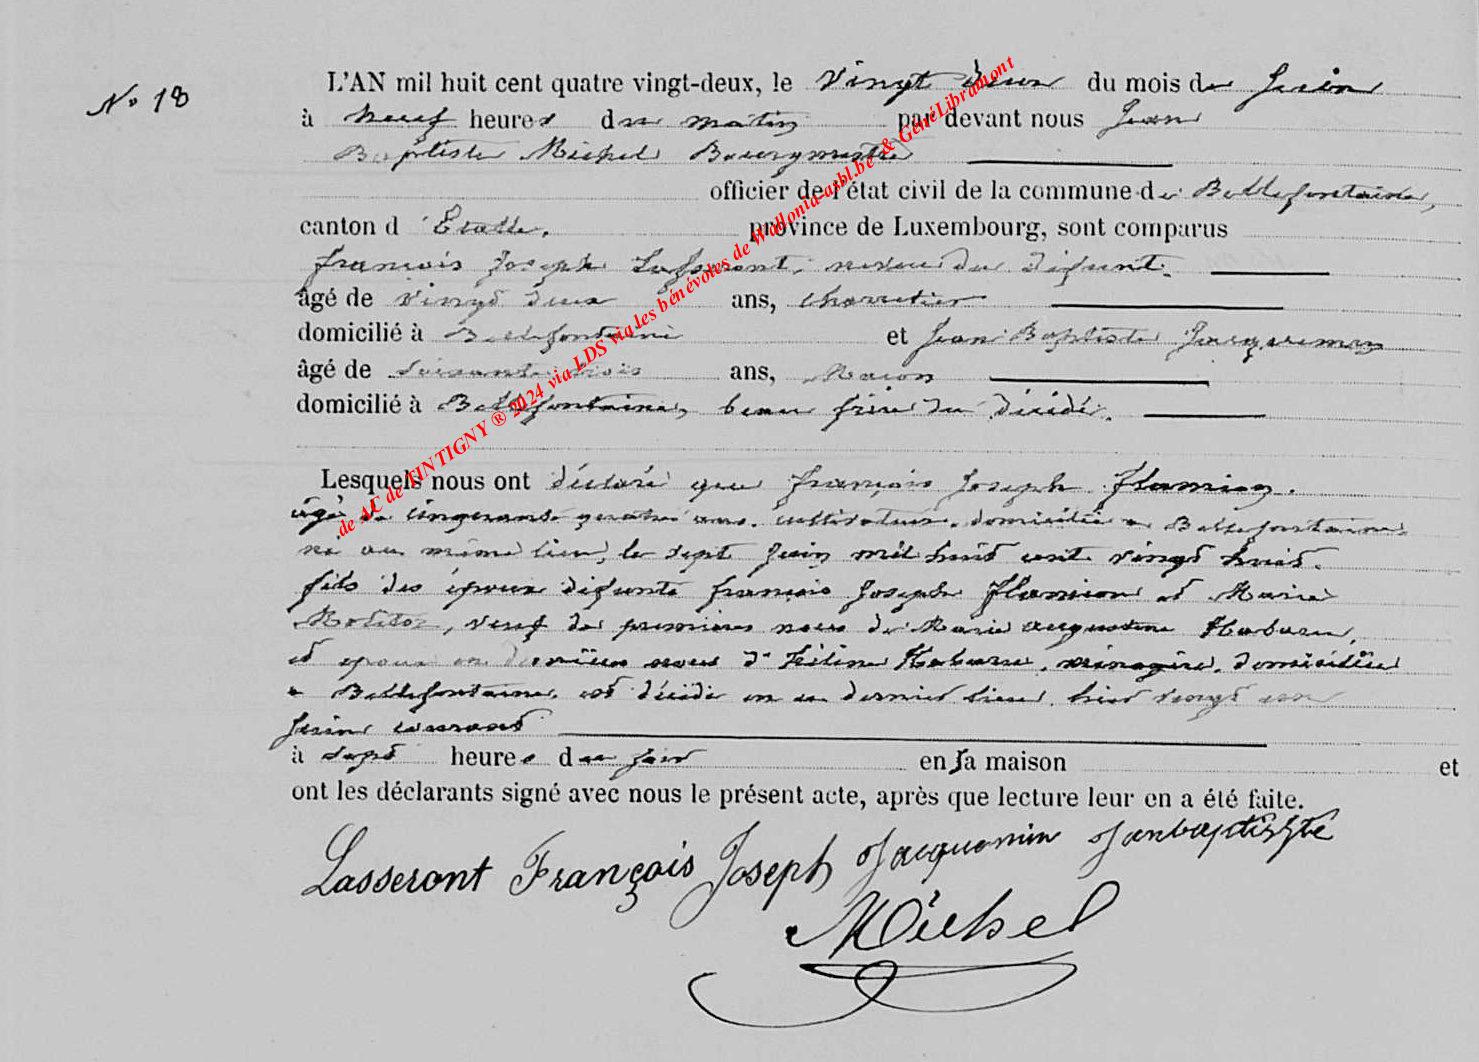 No 18
L'AN mil huit cent quatre vingt-deux, le vingt deux du mois de Juin
à neuf heures du matin par devant nous Jean
Baptiste Michel Bourgmestre
officier de l'état civil de la commune de Bellefontaine,
canton d'Etalle, province de Luxembourg, sont comparus
françois Joseph Lasseront, neveu du défunt.
âgé de vingt deux ans, charretier
domicilié à Bellefontaine et Jean Baptiste Jacquemin
âgé de soixante trois ans, Maçon
domicilié à Bellefontaine, beau frère du décédé.
Lesquels nous ont déclaré que françois Joseph flamion.
âgé de cinquante quatre ans. cultivateur. domicilié à Bellefontaine
né au même lieu, le sept Juin mil huit cent vingt huit.
fils des époux défunts françois Joseph flamion et Marie
Molitor, veuf de premières noces de Marie augustine
et époux en dernières noces d' ménagère. domiciliée
à Bellefontaine, est décédé en ce dernier lieu, hier vingt un
Juin courant
à sept heures du soir en sa maison et
ont les déclarants signé avec nous le présent acte, après que lecture leur en a été faite.
Lasseront François Joseph Jacquemin Janbaptisste
Michel
de AE de TINTIGNY ® 2024 via LDS via les bénévoles de Wallonia-asbl.be & GénéLibramont